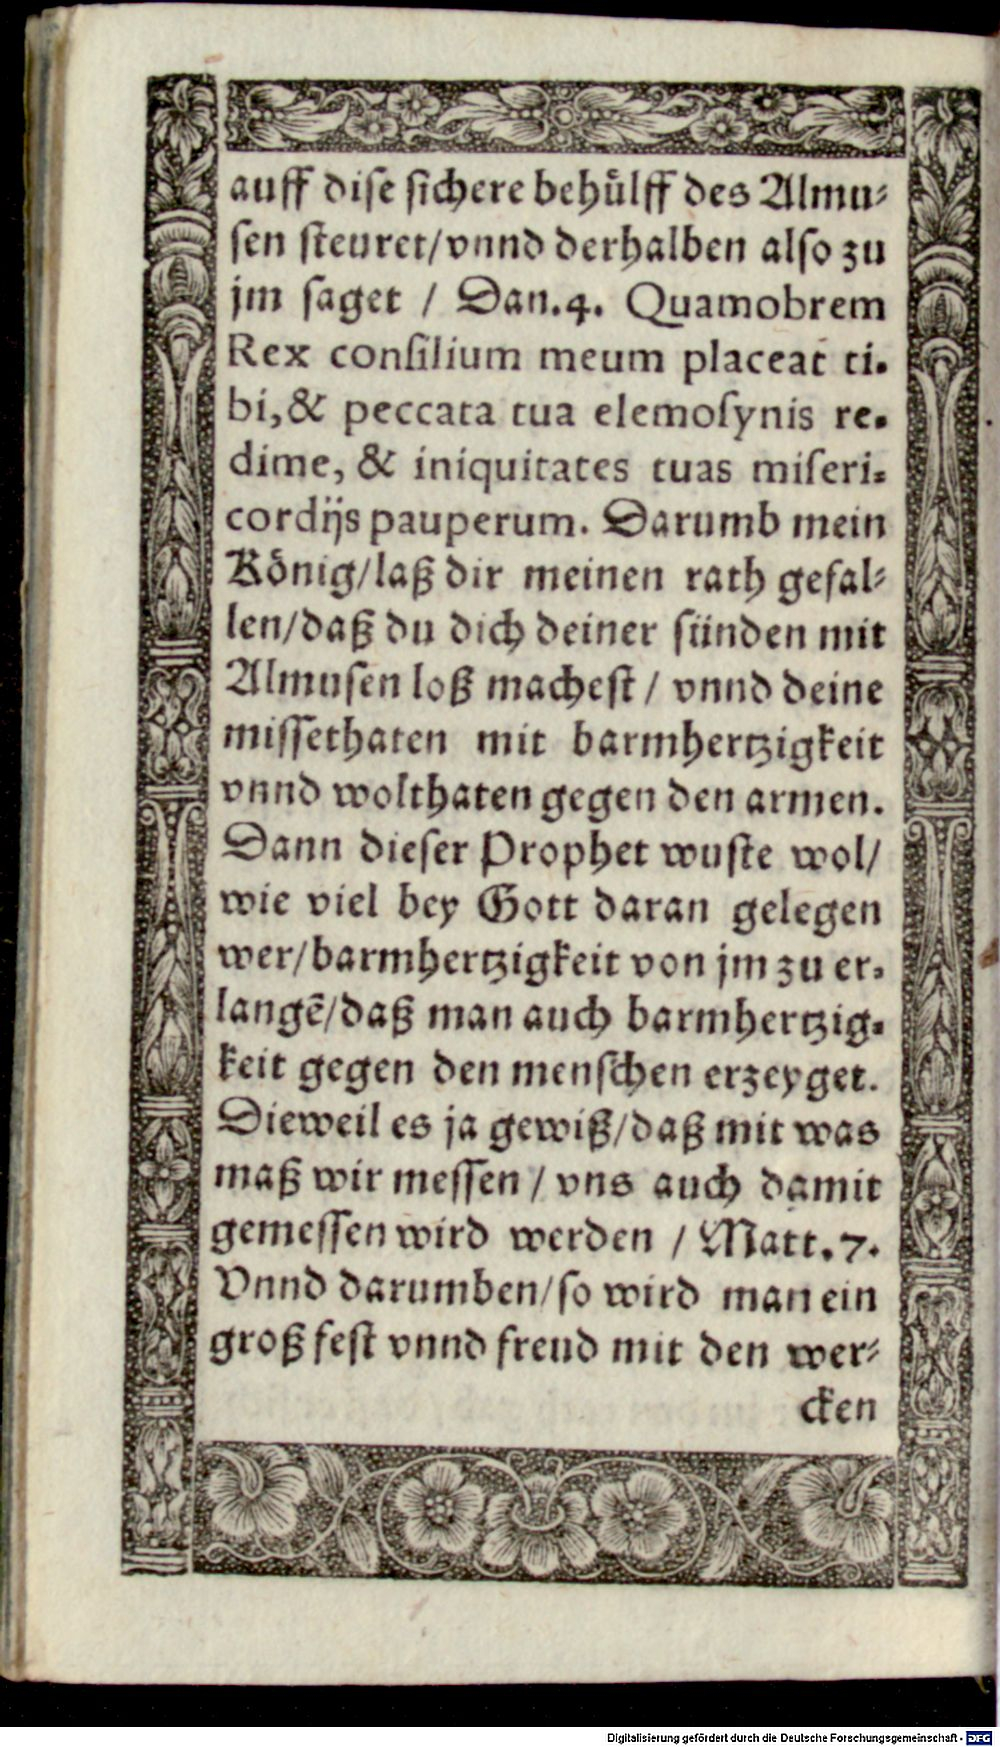 auff dise sichere behůlff des Almu⸗
sen steuret/vnnd derhalben also zu
jm saget / Dan.4. Quamobrem
Rex consilium meum placeat ti⸗
bi,& peccata tua elemosynis re⸗
dime, & iniquitates tuas miseri⸗
cordijs pauperum. Darumb mein
König/laß dir meinen rath gefal⸗
len/daß du dich deiner sünden mit
Almusen loß machest / vnnd deine
missethaten mit barmhertzigkeit
vnnd wolthaten gegen den armen.
Dann dieser Prophet wuste wol/
wie viel bey Gott daran gelegen
wer/barmhertzigkeit von jm zu er⸗
langẽ/daß man auch barmhertzig⸗
keit gegen den menschen erzeyget.
Dieweil es ja gewiß/daß mit was
maß wir messen / vns auch damit
gemessen wird werden / Matt.7.
Vnnd darumben/so wird man ein
groß fest vnnd freud mit den wer⸗
cken
Digitalisierung gefördert durch die Deutsche Forschungsgemeinschaft - DFG